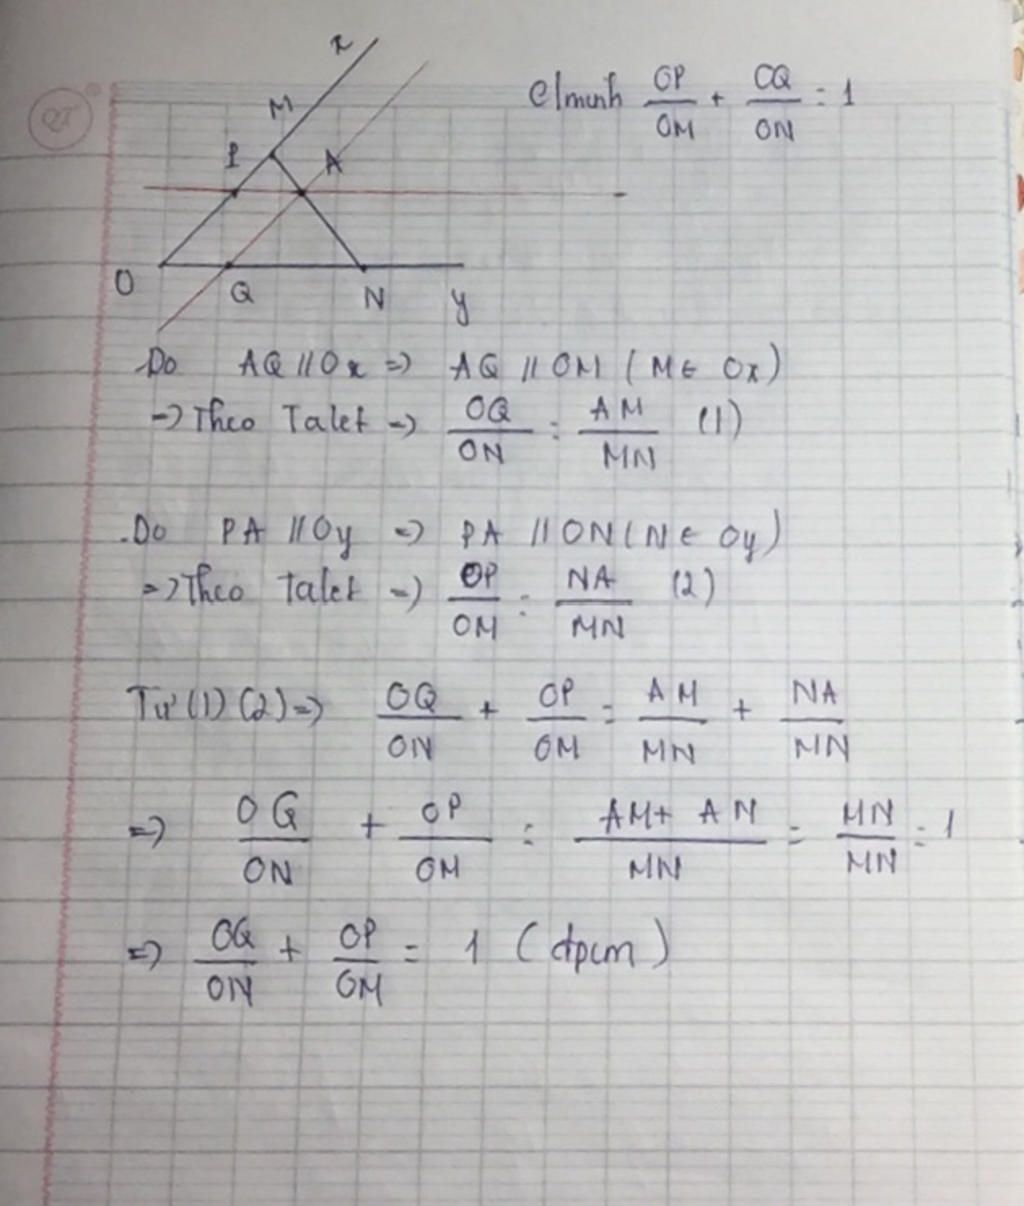 x
M
P
A
O
Q
N
y
C/minh OP/OM + OQ/ON = 1
Do AQ // Ox => AQ // OM (M ∈ Ox)
=> Theo Talet => OQ/ON = AM/MN (1)
.Do PA // Oy => PA // ON (N ∈ Oy)
=> Theo Talet => OP/OM = NA/MN (2)
Từ (1) (2) => OQ/ON + OP/OM = AM/MN + NA/MN
=> OQ/ON + OP/OM = AM + AN/MN = MN/MN = 1
=> OQ/ON + OP/OM = 1 (đpcm)